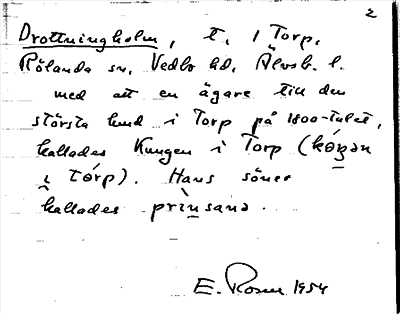 2
Drottningholm, t. i Torp,
Rölanda sn, Vedbo hd, Älvsb. l.
med att en ägare till den
största lund i Torp på 1800-talet,
kallades Kungen i Torp (kóŋən
ı tórp). Hans söner
kallades prìnsana.
E. Rosen 1954